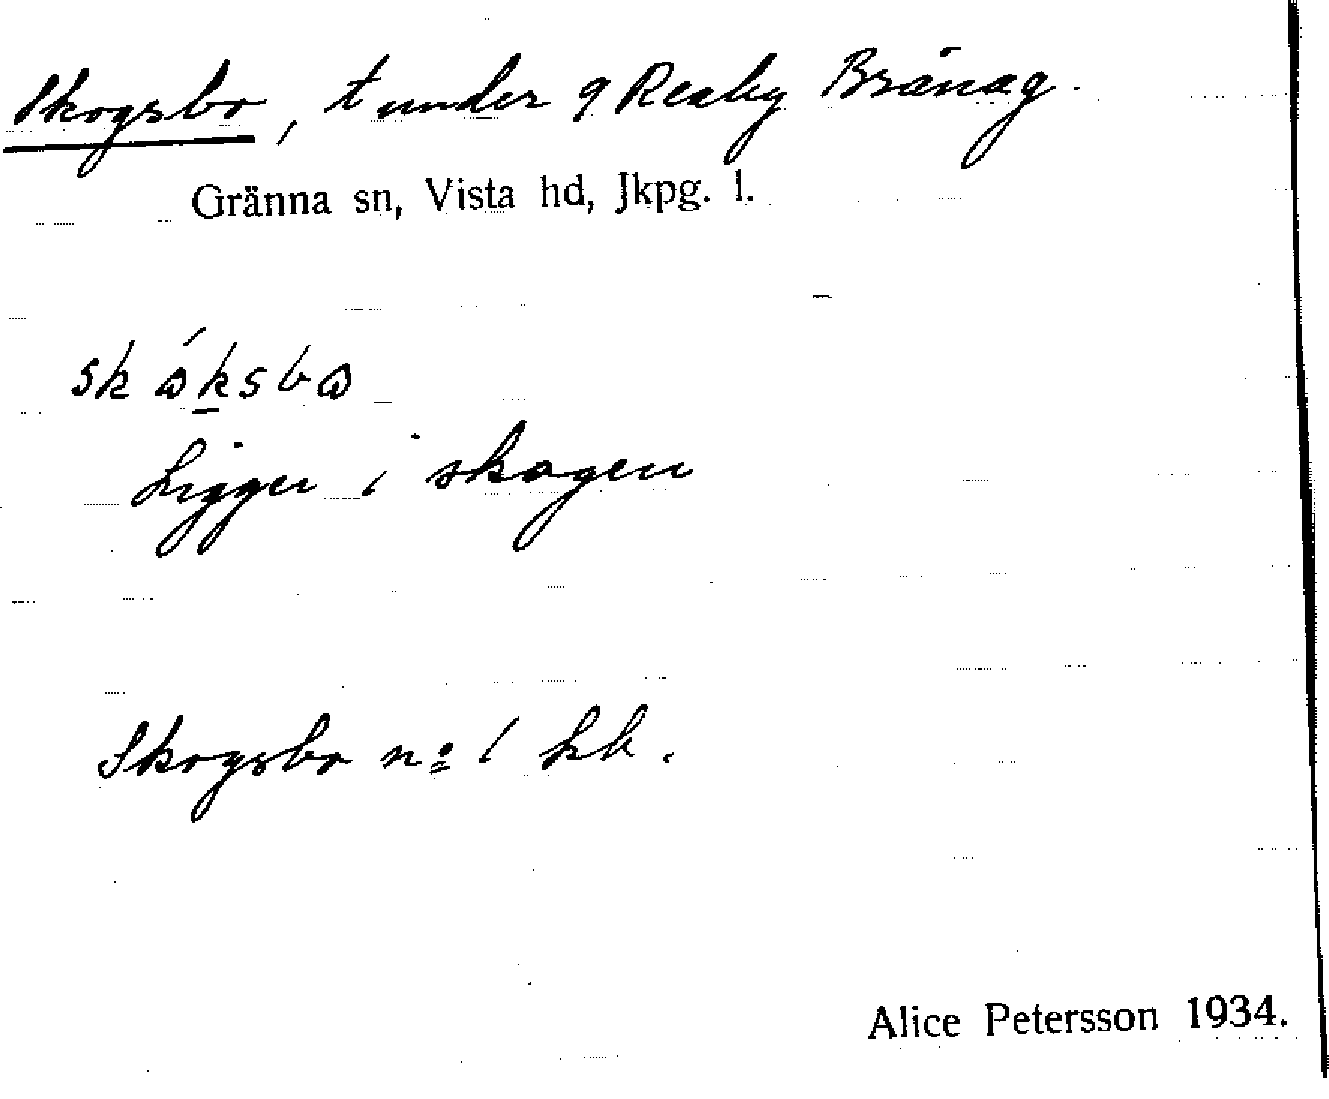 Skogsbo, t under g Reaby Bränag.
Gränna sn, Vista hd, Jkpg. l.
skɷ́ksbɷ
Ligger i skogen
Skogsbo nº 1 kb.
Alice Petersson 1934.